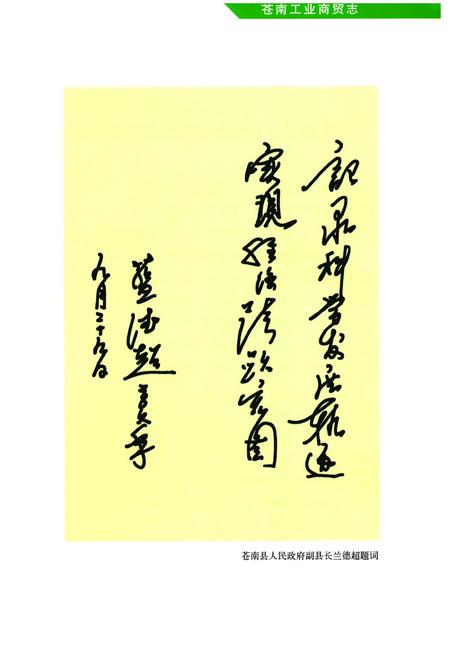 苍南工业商贸志
記录科学发展轨迹
实現经济跨跃宏图
蓝德超
九月二十九日
苍南县人民政府副县长兰德超题词